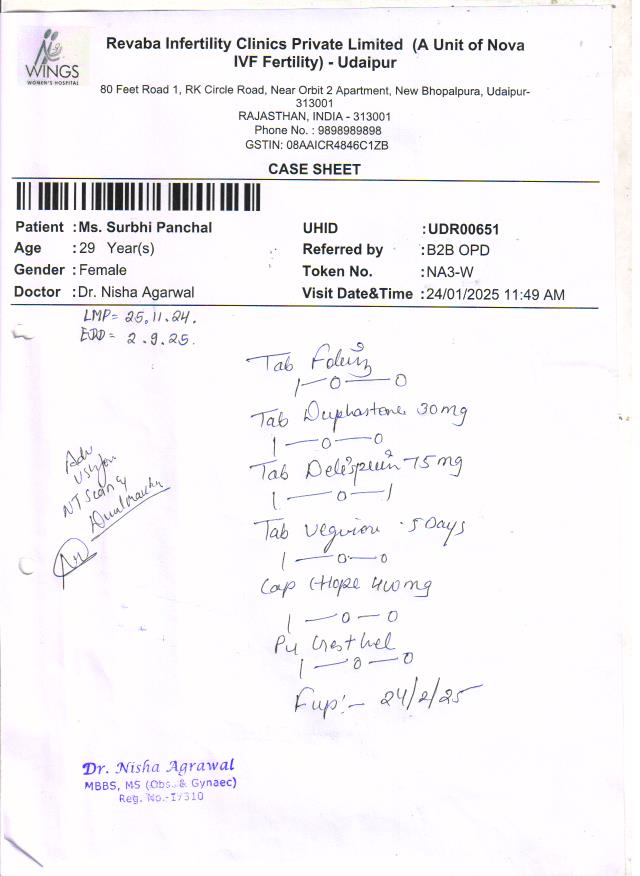 WINGS
WOMEN'S HOSPITAL
Revaba Infertility Clinics Private Limited (A Unit of Nova
IVF Fertility) - Udaipur
80 Feet Road 1, RK Circle Road, Near Orbit 2 Apartment, New Bhopalpura, Udaipur-
313001
RAJASTHAN, INDIA - 313001
Phone No. : 9898989898
GSTIN: 08AAICR4846C1ZB
CASE SHEET
Patient :Ms. Surbhi Panchal
UHID :UDR00651
Age :29 Year(s)
Referred by :B2B OPD
Gender :Female
Token No. :NA3-W
Doctor :Dr. Nisha Agarwal
Visit Date&Time :24/01/2025 11:49 AM
LMP= 25.11.24.
EDD= 2.9.25.
Tab
1—0—0
Tab Duphastone 30mg
1—0—0
Tab 75mg
1—0—1
Tab 5 Days
1—0—0
Cap 400mg
1—0—0
1—0—0
Fup:- 24/2/25
Adv
NT Scan &
Dual marker
Dr. Nisha Agrawal
MBBS, MS (Obs. & Gynaec)
Reg. No.-17310